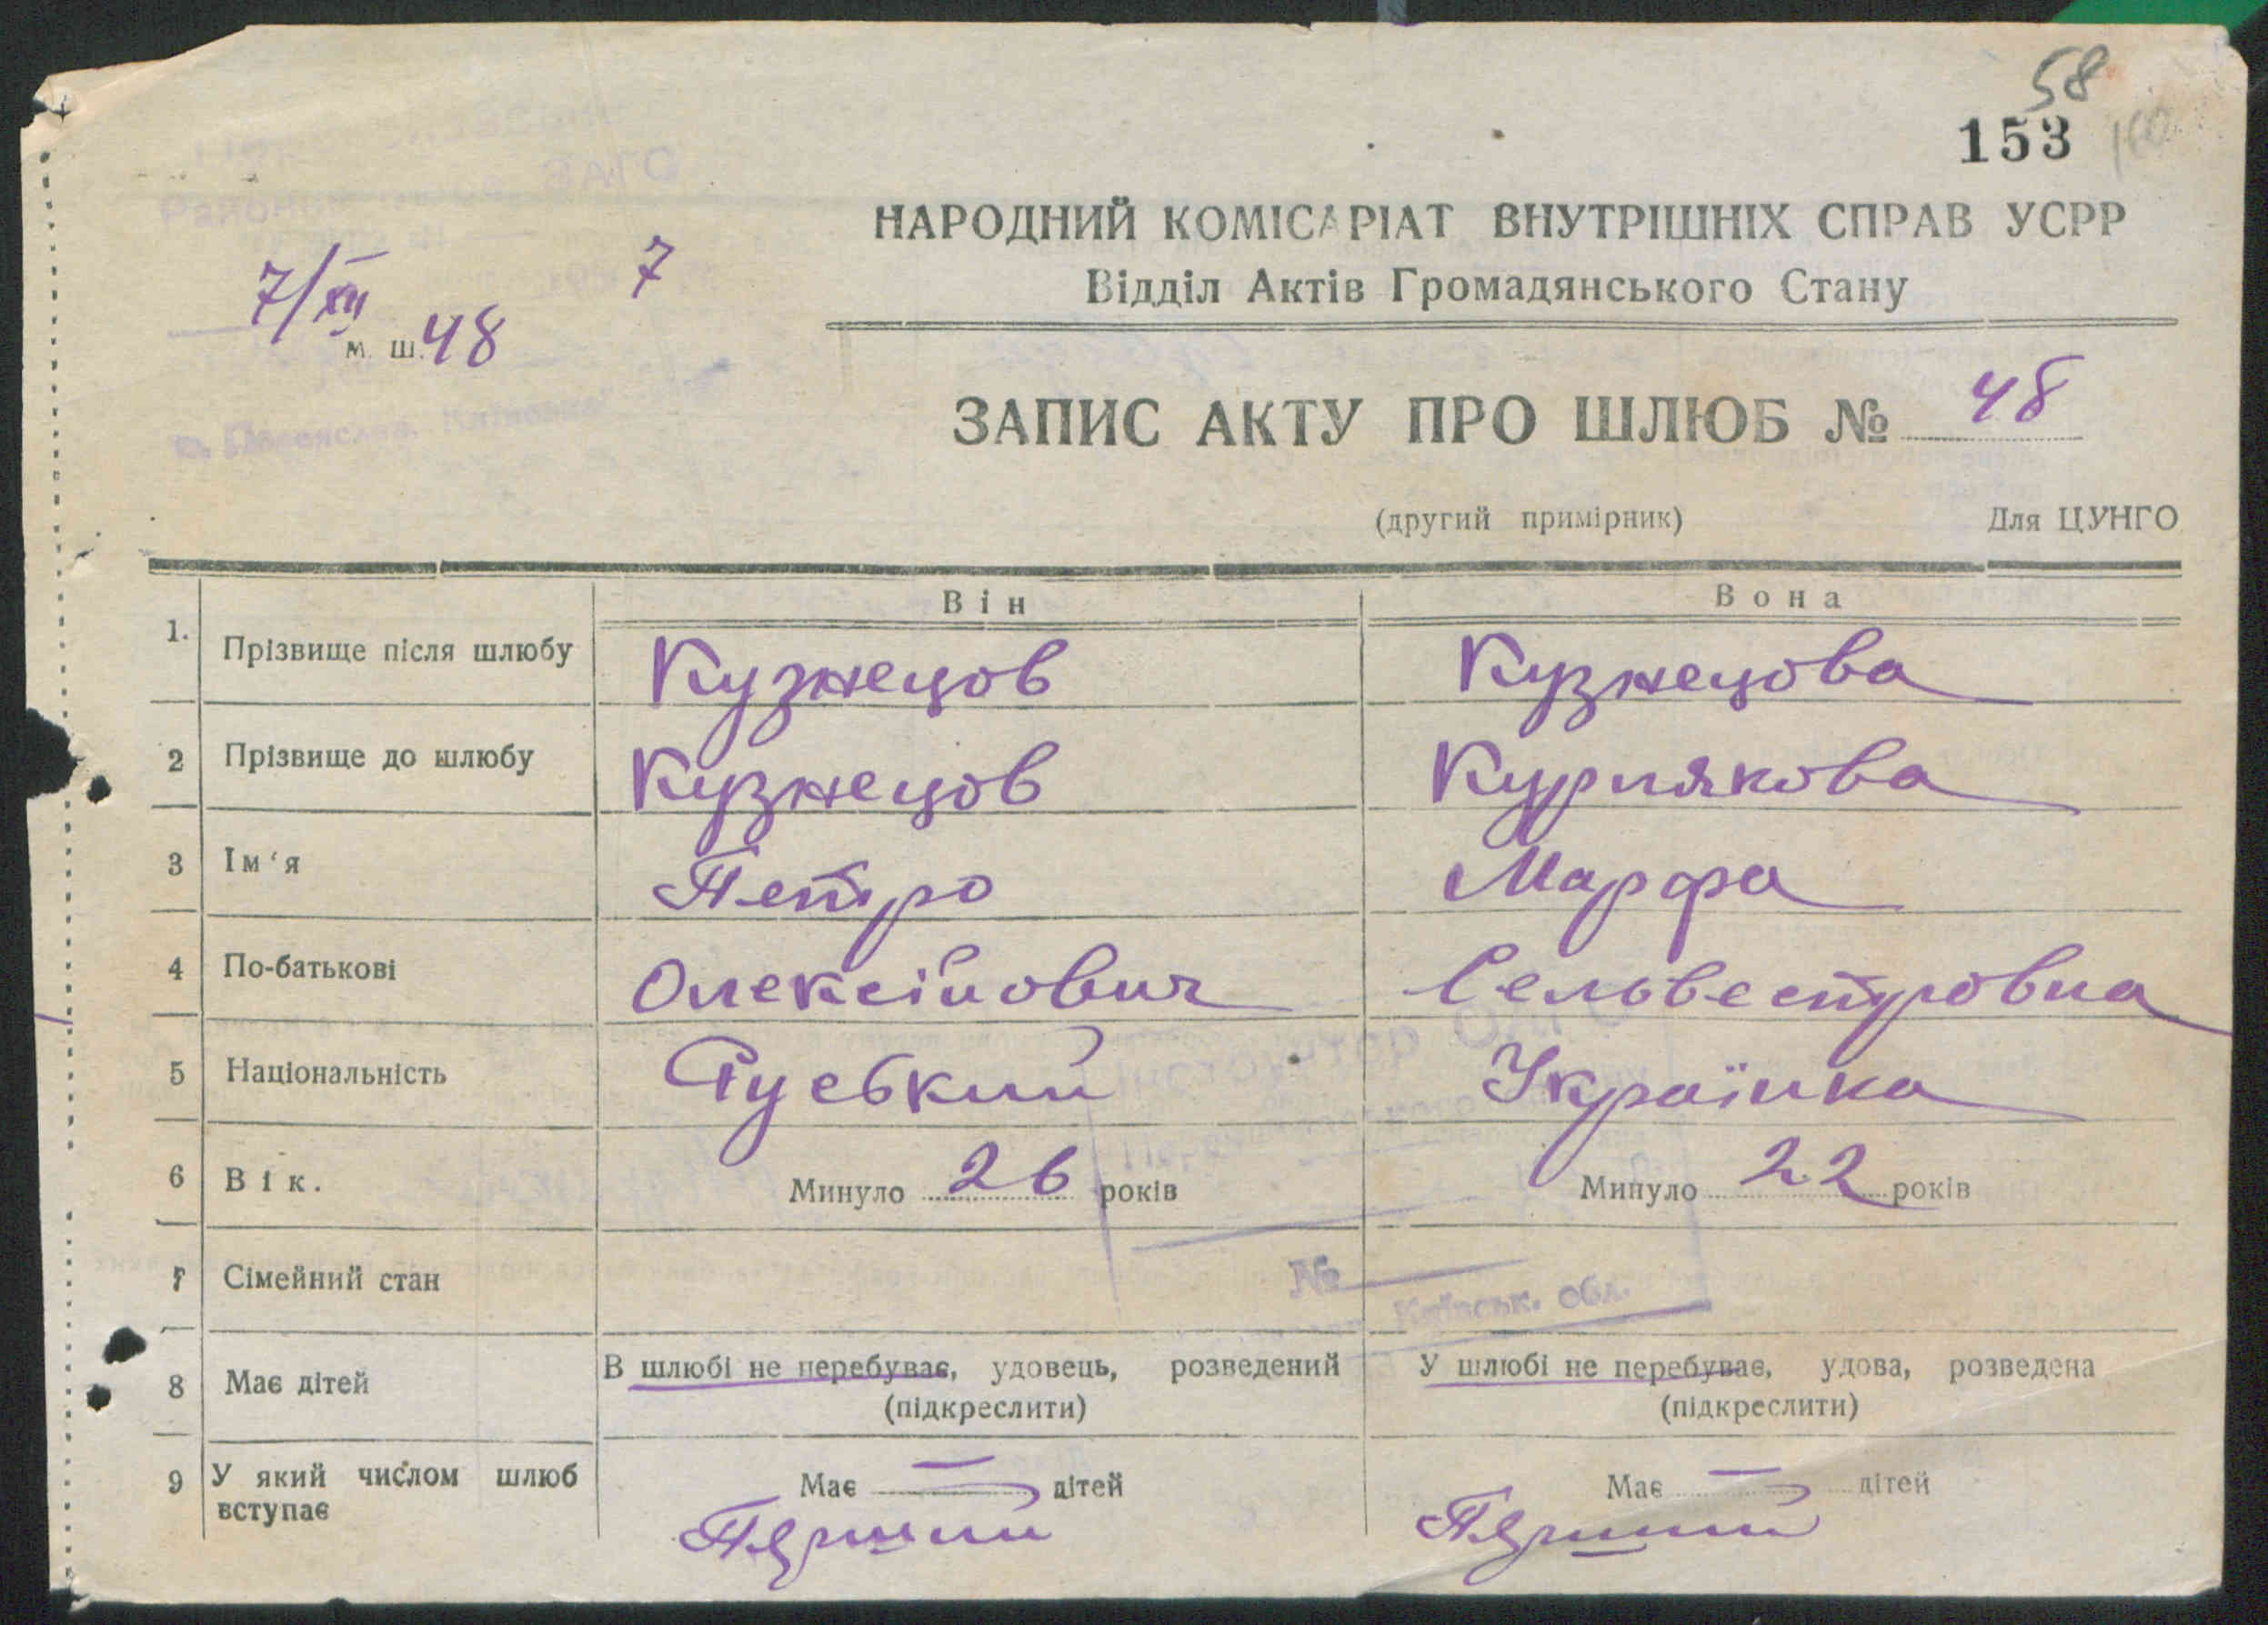 58
153
НАРОДНИЙ КОМІСАРІАТ ВНУТРІШНІХ СПРАВ УСРР
Відділ Актів Громадянського Стану
7/XII 7
м. ш. 48
ЗАПИС АКТУ ПРО ШЛЮБ № 48
(другий примірник) Для ЦУНГО
Він Вона
1. Прізвище після шлюбу Кузнецов Кузнецова
2 Прізвище до шлюбу Кузнецов Курлякова
3 Ім‘я Петро Марфа
4 По-батькові Олексійович Сельвестровна
5 Національність Руський Українка
6 Вік. Минуло 26 років Минуло 22 років
7 Сімейний стан
№
Київськ. обл.
8 Має дітей В шлюбі не перебуває, удовець, розведений У шлюбі не перебуває, удова, розведена
(підкреслити) (підкреслити)
9 У який числом шлюб Має — дітей Має — дітей
вступає Перший Перший